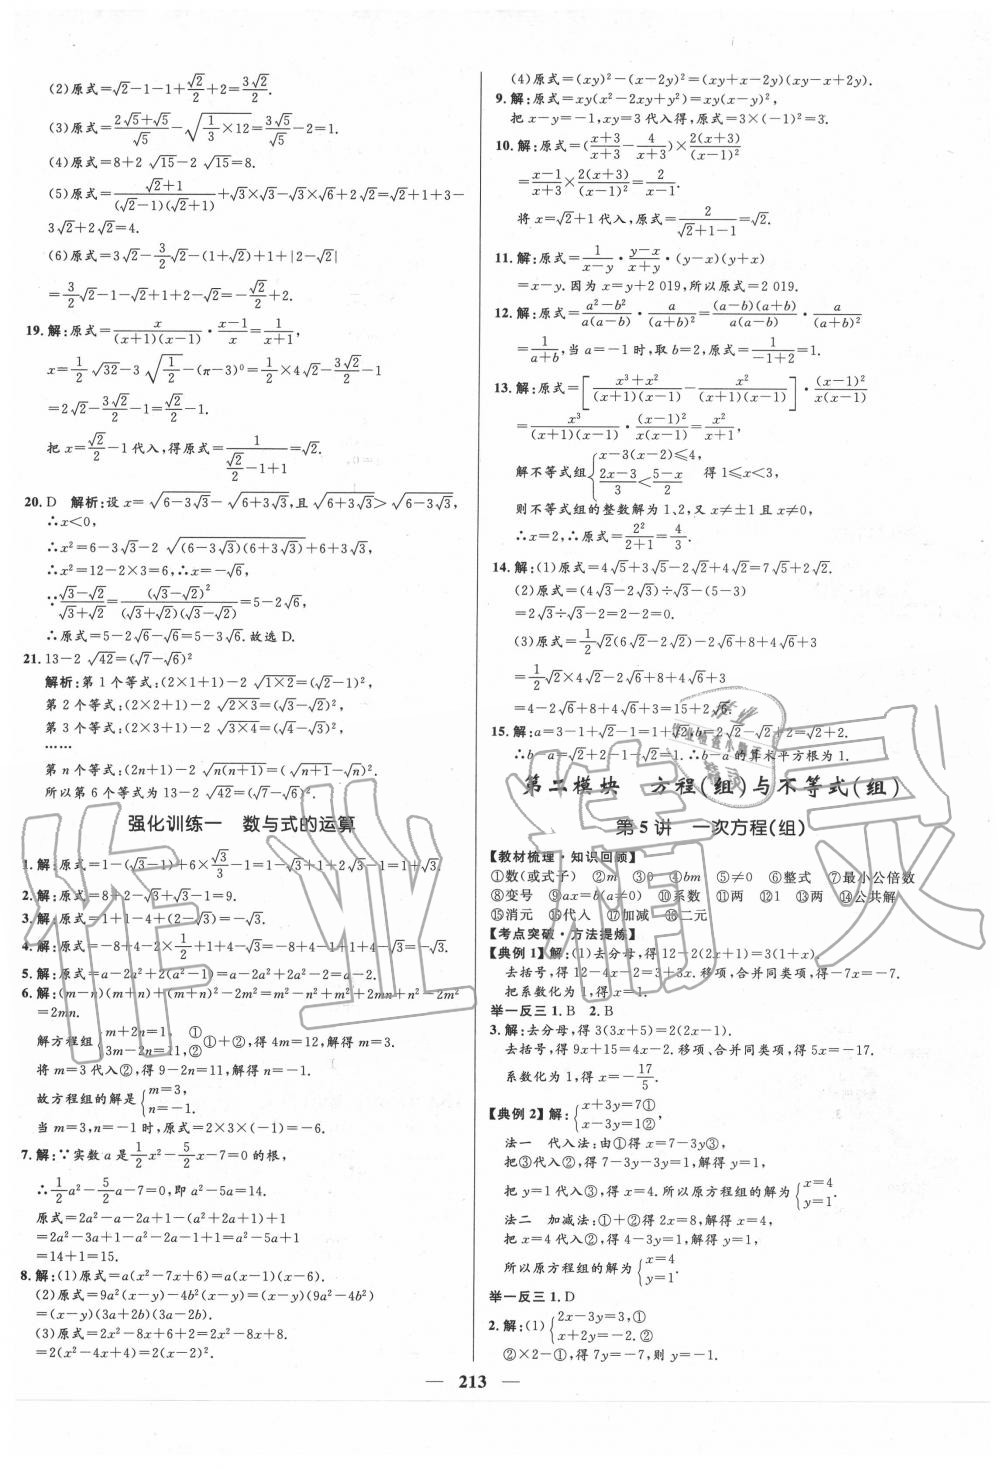 (2)原式=√2-1-1+√2/2+2=3√2/2.
(3)原式=(2√5+√5)/√5-√(1/3×12)=3√5/√5-2=1.
(4)原式=8+2√15-2√15=8.
(5)原式=(√2+1)/((√2-1)(√2+1))+√3×√3-√3×√6+2√2=√2+1+3-
3√2+2√2=4.
(6)原式=3√2-3/2√2-(1+√2)+1+|2-√2|
=3/2√2-1-√2+1+2-√2=-√2/2+2.
19.解:原式=x/((x+1)(x-1))·(x-1)/x=1/(x+1),
x=1/2√32-3√(1/2)-(π-3)⁰=1/2×4√2-3√2/2-1
=2√2-3√2/2-1=√2/2-1.
把x=√2/2-1代入,得原式=1/(√2/2-1+1)=√2.
20.D 解析:设x=√(6-3√3)-√(6+3√3),且√(6+3√3)>√(6-3√3),
∴x<0,
∴x²=6-3√3-2√((6-3√3)(6+3√3))+6+3√3,
∴x²=12-2×3=6,∴x=-√6,
∵(√3-√2)/(√3+√2)=(√3-√2)²/((√3+√2)(√3-√2))=5-2√6,
∴原式=5-2√6-√6=5-3√6.故选D.
21.13-2√42=(√7-√6)²
解析:第1个等式:(2×1+1)-2√(1×2)=(√2-1)²,
第2个等式:(2×2+1)-2√(2×3)=(√3-√2)²,
第3个等式:(2×3+1)-2√(3×4)=(√4-√3)²,
……
第n个等式:(2n+1)-2√(n(n+1))=(√(n+1)-√n)²,
所以第6个等式为13-2√42=(√7-√6)².
强化训练一 数与式的运算
1.解:原式=1-(√3-1)+6×√3/3-1=1-√3+1+2√3-1=1+√3.
2.解:原式=8+2-√3+√3-1=9.
3.解:原式=1+1-4+(2-√3)=-√3.
4.解:原式=-8+4-2×1/2+1+4-√3=-8+4-1+1+4-√3=-√3.
5.解:原式=a-2a²+2(a²-1)=a-2a²+2a²-2=a-2.
6.解:(m-n)(m+n)+(m+n)²-2m²=m²-n²+m²+2mn+n²-2m²
=2mn.
解方程组{m+2n=1, ① 3m-2n=11,② ①+②,得4m=12,解得m=3.
将m=3代入②,得9-2n=11,解得n=-1.
故方程组的解是{m=3, n=-1.
当m=3,n=-1时,原式=2×3×(-1)=-6.
7.解:∵实数a是1/2x²-5/2x-7=0的根,
∴1/2a²-5/2a-7=0,即a²-5a=14.
原式=2a²-a-2a+1-(a²+2a+1)+1
=2a²-3a+1-a²-2a-1+1=a²-5a+1
=14+1=15.
8.解:(1)原式=a(x²-7x+6)=a(x-1)(x-6).
(2)原式=9a²(x-y)-4b²(x-y)=(x-y)(9a²-4b²)
=(x-y)(3a+2b)(3a-2b).
(3)原式=2x²-8x+6+2=2x²-8x+8
=2(x²-4x+4)=2(x-2)².
(4)原式=(xy)²-(x-2y)²=(xy+x-2y)(xy-x+2y).
9.解:原式=xy(x²-2xy+y²)=xy(x-y)²,
把x-y=-1,xy=3代入得,原式=3×(-1)²=3.
10.解:原式=((x+3)/(x+3)-4/(x+3))×2(x+3)/(x-1)²
=(x-1)/(x+3)×2(x+3)/(x-1)²=2/(x-1).
将x=√2+1代入,原式=2/(√2+1-1)=√2.
11.解:原式=1/(x-y)·(y-x)/(x+y)·(y-x)(y+x)
=x-y.因为x=y+2 019,所以原式=2 019.
12.解:原式=(a²-b²)/(a(a-b))·a/(a+b)²=(a-b)(a+b)/(a(a-b))·a/(a+b)²
=1/(a+b),当a=-1时,取b=2,原式=1/(-1+2)=1.
13.解:原式=[(x³+x²)/((x+1)(x-1))-x²/((x+1)(x-1))]·(x-1)²/(x(x-1))
=x³/((x+1)(x-1))·(x-1)²/(x(x-1))=x²/(x+1),
解不等式组{x-3(x-2)≤4, (2x-3)/3<(5-x)/2 得1≤x<3,
则不等式组的整数解为1、2,又x≠±1且x≠0,
∴x=2,∴原式=2²/(2+1)=4/3.
14.解:(1)原式=4√5+3√5-2√2+4√2=7√5+2√2.
(2)原式=(4√3-2√3)÷√3-(5-3)
=2√3÷√3-2=2-2=0.
(3)原式=1/2√2(6√2-2√2)-2√6+8+4√6+3
=1/2√2×4√2-2√6+8+4√6+3
=4-2√6+8+4√6+3=15+2√6.
15.解:a=3-1+√2-1=1+√2,b=2√2-√2+2=√2+2.
∴b-a=√2+2-1-√2=1.∴b-a的算术平方根为1.
第二模块 方程(组)与不等式(组)
第5讲 一次方程(组)
【教材梳理·知识回顾】
①数(或式子) ②m ③0 ④bm ⑤≠0 ⑥整式 ⑦最小公倍数
⑧变号 ⑨ax=b(a≠0) ⑩系数 ⑪两 ⑫1 ⑬两 ⑭公共解
⑮消元 ⑯代入 ⑰加减 ⑱二元
【考点突破·方法提炼】
【典例1】解:(1)去分母,得12-2(2x+1)=3(1+x).
去括号,得12-4x-2=3+3x.移项,合并同类项,得-7x=-7.
把系数化为1,得x=1.
举一反三 1.B 2.B
3.解:去分母,得3(3x+5)=2(2x-1).
去括号,得9x+15=4x-2.移项、合并同类项,得5x=-17.
系数化为1,得x=-17/5.
【典例2】解:{x+3y=7① x-3y=1②,
法一 代入法:由①得x=7-3y③,
把③代入②,得7-3y-3y=1,解得y=1,
把y=1代入③,得x=4.所以原方程组的解为{x=4 y=1.
法二 加减法:①+②得2x=8,解得x=4,
把x=4代入②,得4-3y=1,解得y=1,
所以原方程组的解为{x=4 y=1.
举一反三 1.D
2.解:(1){2x-3y=3,① x+2y=-2.②
②×2-①,得7y=-7,则y=-1.
— 213 —